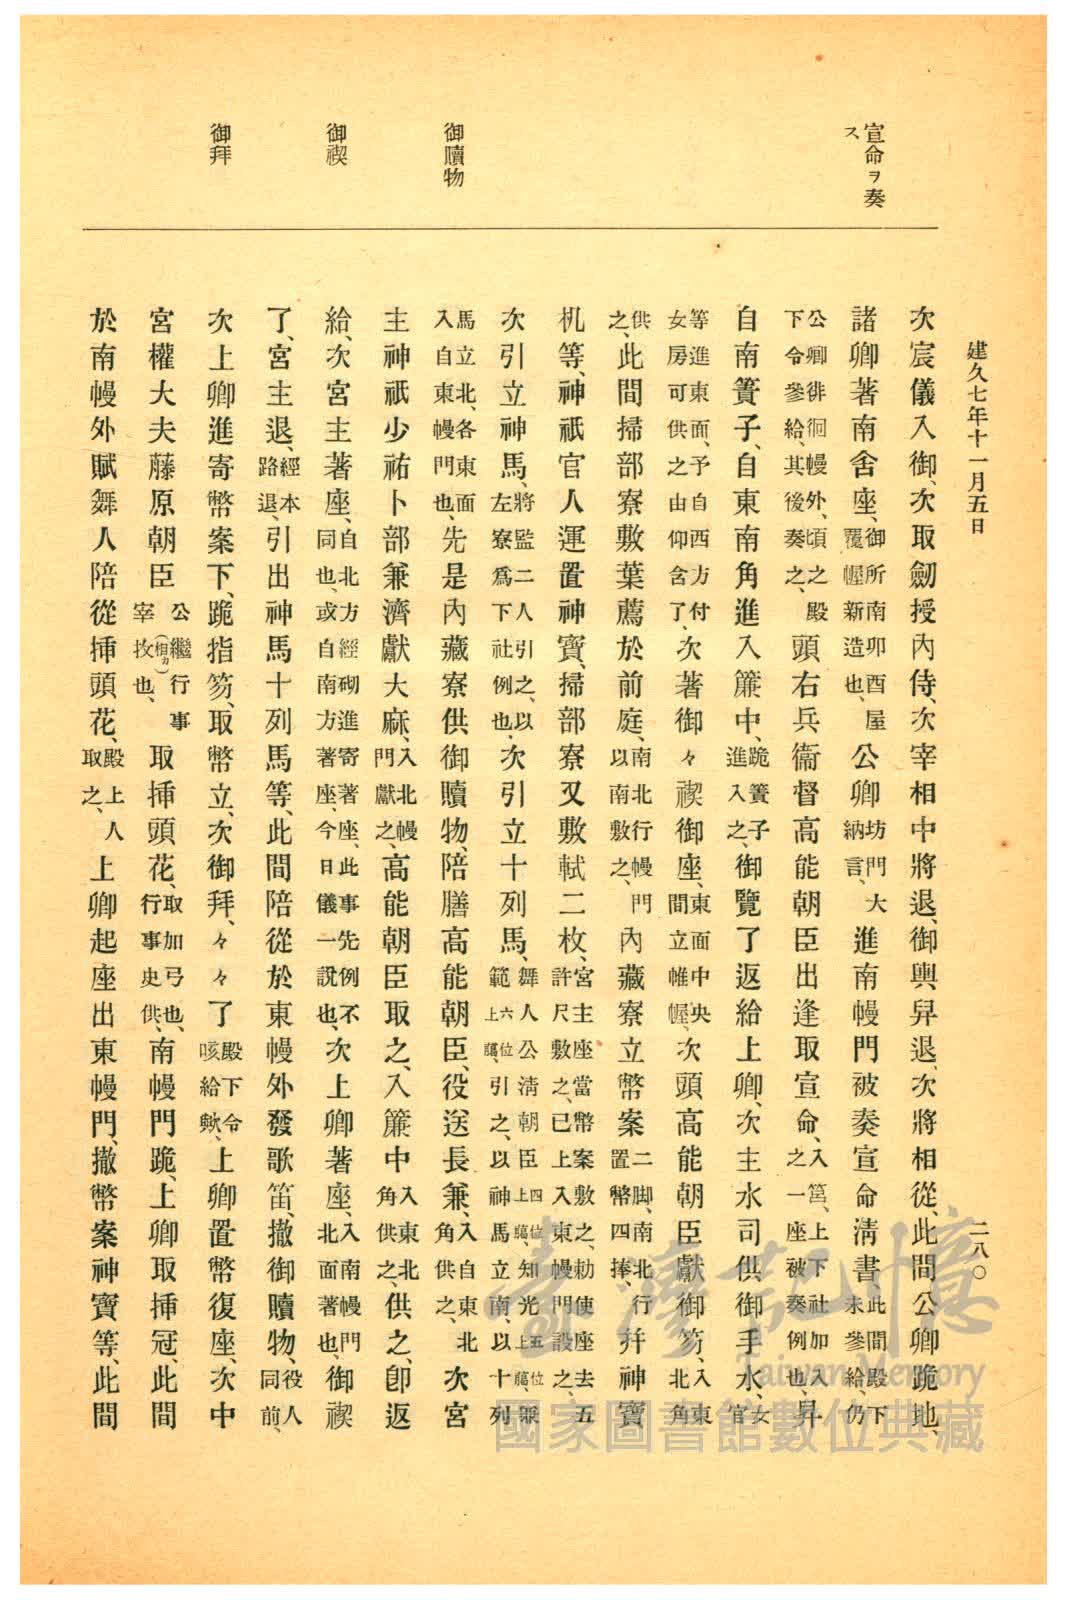 建久七年十一月五日
二八〇
宣命ヲ奏
ス
御贖物
御禊
御拜
次宸儀入御、次取劒授內侍、次宰相中將退、御輿舁退、次將相從、此間公卿跪地、
諸卿著南舍座、御所南卯酉屋覆幄新造也、公卿坊門大納言、進南幔門被奏宣命淸書、此間殿下未參給、仍
公卿徘徊幔外、頃之殿下令參給、其後奏之、頭右兵衞督高能朝臣出逢取宣命、入筥、上下社加入之一座被奏例也、昇
自南簀子、自東南角進入簾中、跪簀子進入之、御覽了返給上卿、次主水司供御手水、女官
等進東面、予自西方付女房可供之由仰含了、次著御々禊御座、東面中央間立帷幄、次頭高能朝臣獻御笏、入東北角
供之、此間掃部寮敷葉薦於前庭、南北行幔門以南敷之、內藏寮立幣案二脚、南北行置幣四捧、幷神寶
机等、神祇官人運置神寶、掃部寮又敷軾二枚、宮主座當幣案敷之、勅使座去五許尺敷之、已上入東幔門設之、
次引立神馬、將監二人引之、以左寮爲下社例也、次引立十列馬、舞人公淸朝臣四位上﨟、知光五位上﨟、範六位上﨟、引之、以神馬立南、以十列
馬立北、各東面入自東幔門也、先是內藏寮供御贖物、陪膳高能朝臣、役送長兼、入自東北角供之、次宮
主神祇少祐卜部兼濟獻大麻、入北幔門獻之、高能朝臣取之、入簾中入東北角供之、供之、卽返
給、次宮主著座、自北方經砌進寄著座、此事先例不同也、或自南方著座、今日儀一說也、次上卿著座、入南幔門北面著也、御禊
了、宮主退、經本路退、引出神馬十列馬等、此間陪從於東幔外發歌笛、撤御贖物、役人同前、
次上卿進寄幣案下、跪指笏、取幣立、次御拜、々々了殿下令咳給歟、上卿置幣復座、次中
宮權大夫藤原朝臣公繼行事宰(相カ)也、取挿頭花、取加弓也、行事史供、南幔門跪、上卿取挿冠、此間
於南幔外賦舞人陪從挿頭花、殿上人取之、上卿起座出東幔門、撤幣案神寶等、此間
臺灣記憶
Taiwan Memory
國家圖書館數位典藏